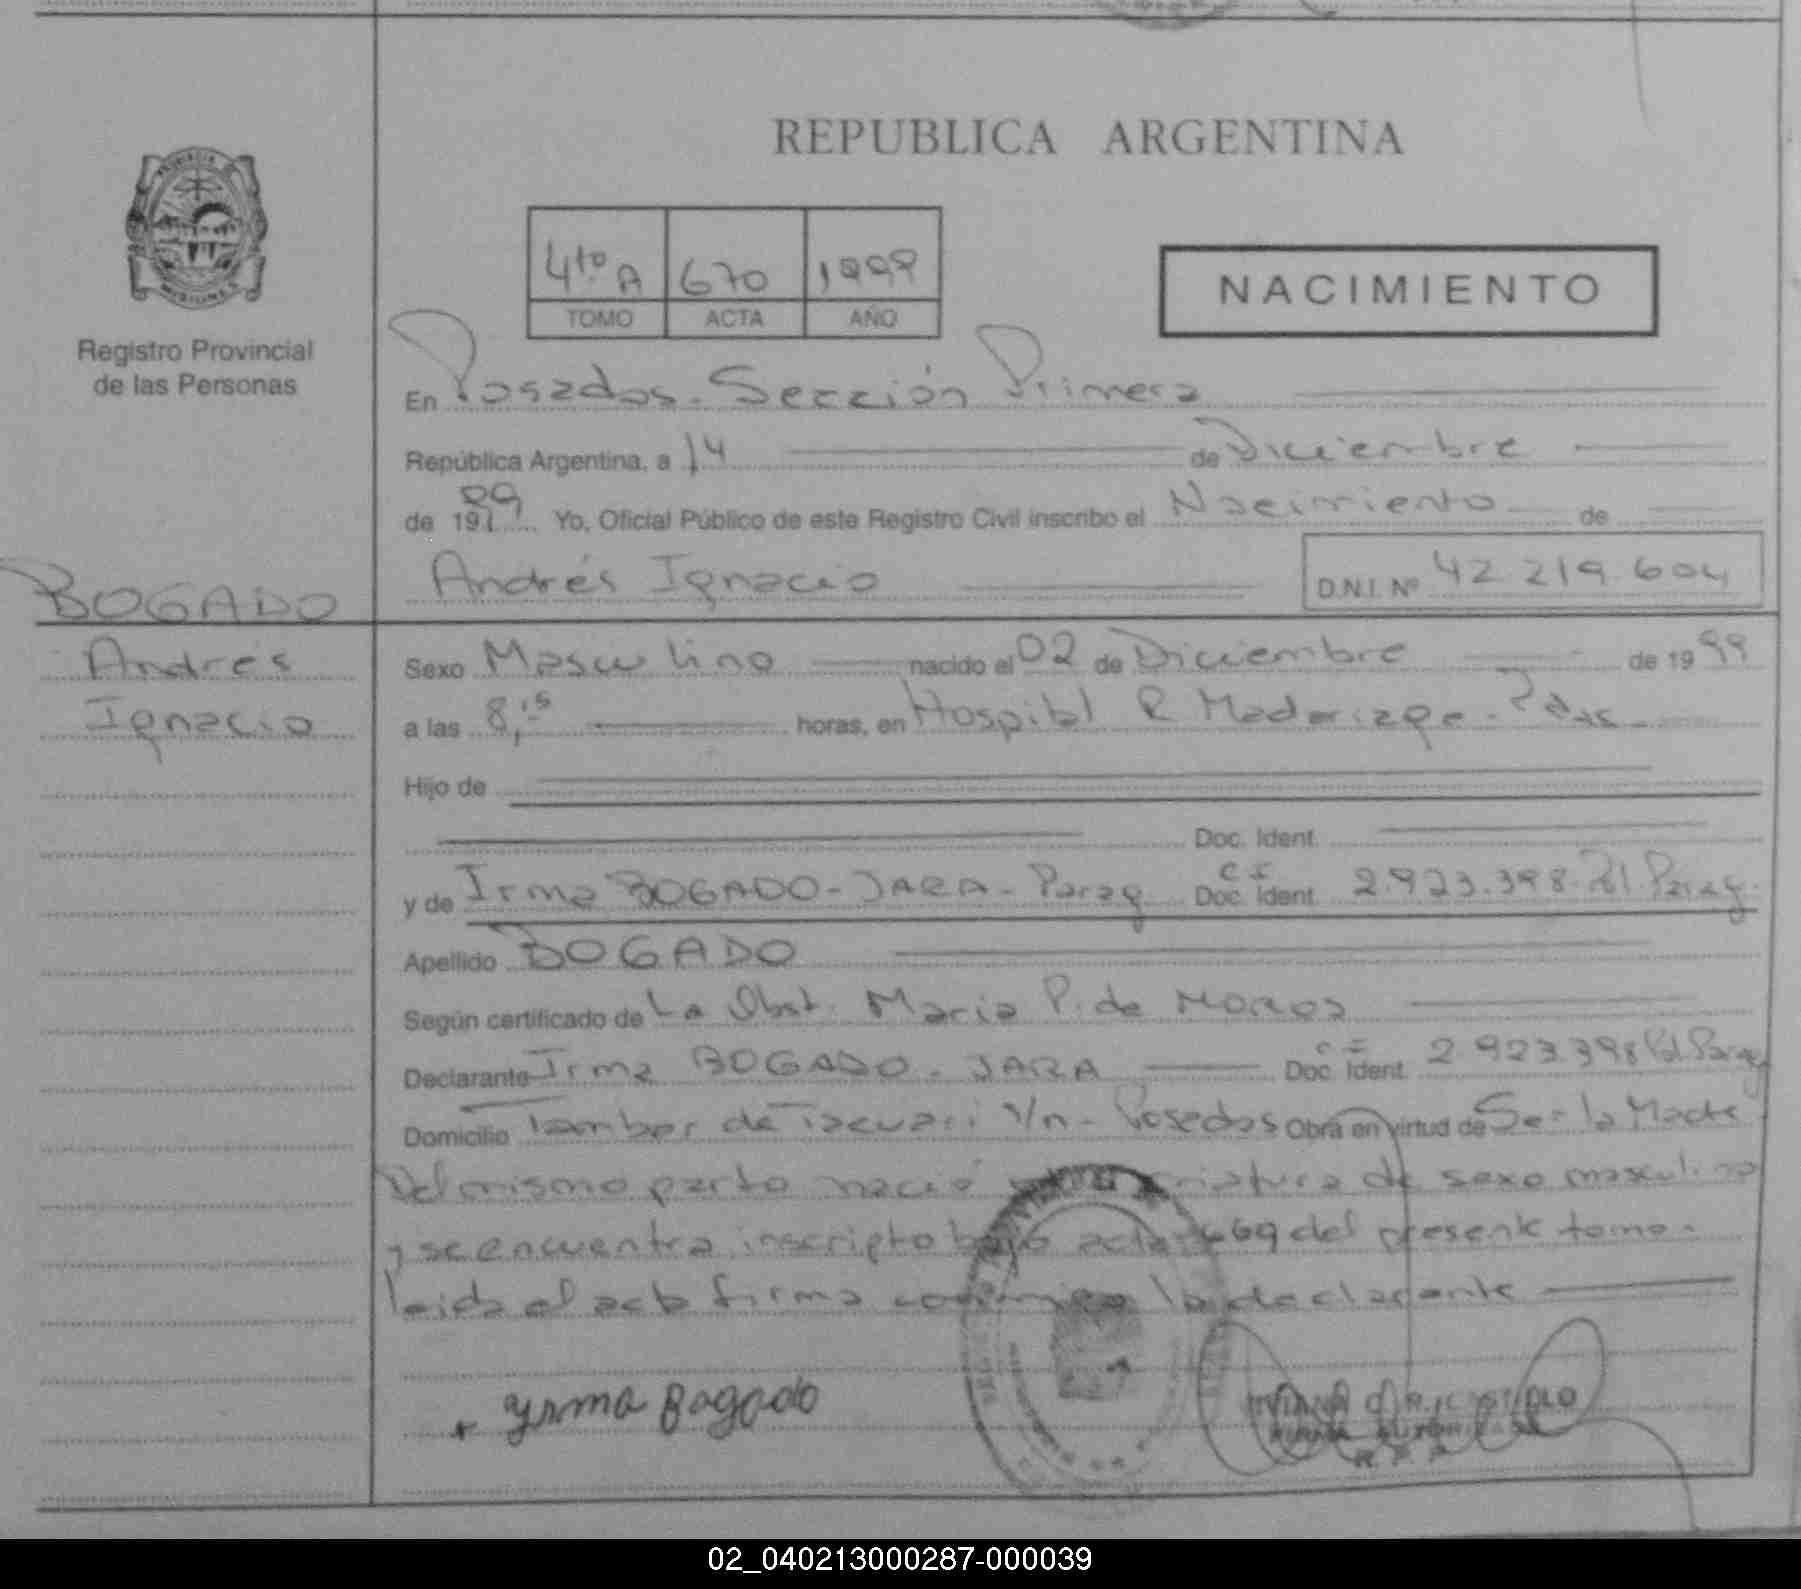 REPUBLICA ARGENTINA
4to A 670 1999
TOMO ACTA AÑO
NACIMIENTO
MISIONES
Registro Provincial
de las Personas
En Posadas - Sección Primera
República Argentina, a 14 de Diciembre
de 1999 Yo, Oficial Público de este Registro Civil inscribo el Nacimiento de
Andrés Ignacio D.N.I. Nº 42 219 604
BOGADO
Andrés
Ignacio
Sexo Masculino nacido el 02 de Diciembre de 1999
a las 8,15 horas, en Hospital R Madariaga - Pdas -
Hijo de
Doc. Ident.
y de Irma BOGADO - JARA - Parag C I Doc. Ident. 2.923.398 - Pol. Parag.
Apellido BOGADO
Según certificado de La Obst. Maria P. de
Declarante Irma BOGADO - JARA C I Doc. Ident. 2.923.398 Pol. Parag
Domicilio Tambor de Tacuari s/n - Posadas Obra en virtud de Ser la Madre
Del mismo parto nació criatura de sexo masculino
y se encuentra inscripto bajo acta 669 del presente tomo -
leida el acta firma conmigo la declarante
+ Yrma Bogado
02_040213000287-000039